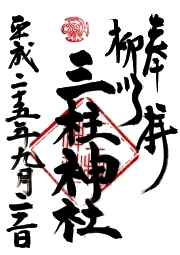 奉拝
柳川
三柱神社
平成二十五年九月二二日